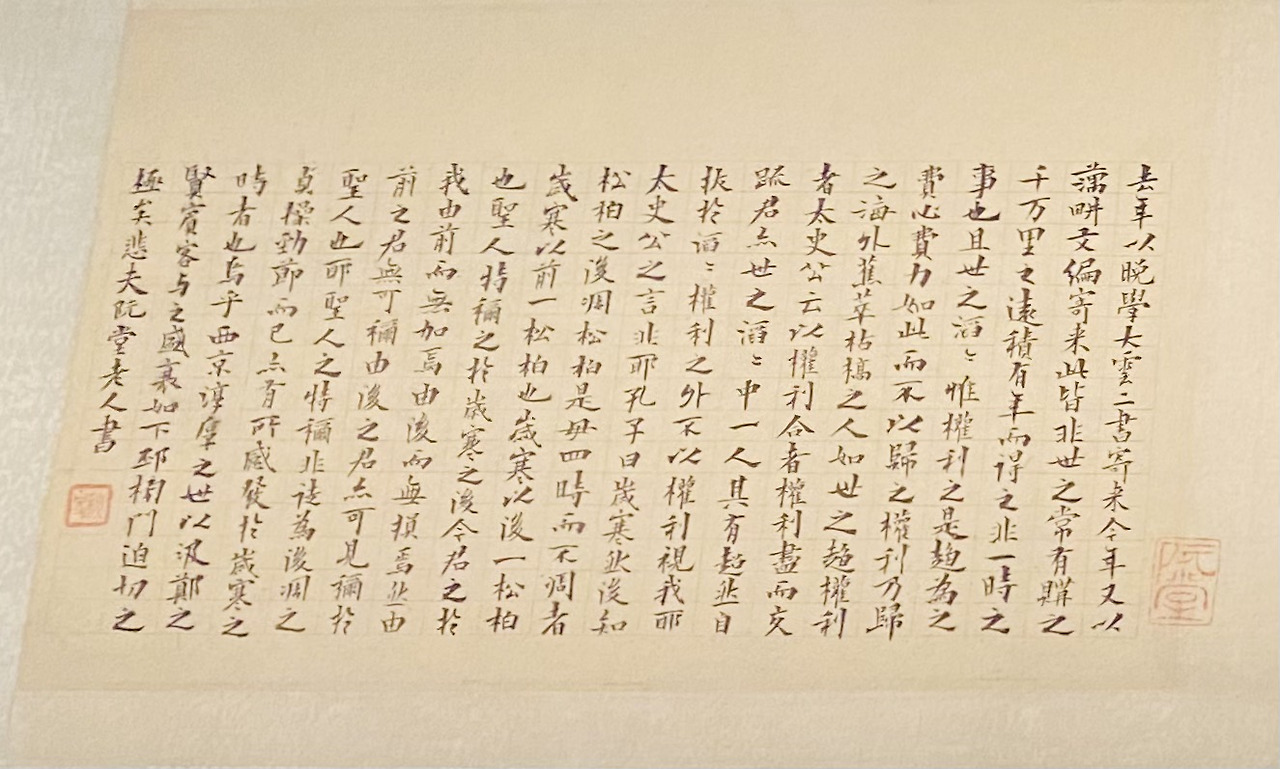 阮堂
去年以晚學大雲二書寄來今年又以
藕畊文編寄来此皆非世之常有購之
千万里之遠積有年而得之非一時之
事也且世之滔〻惟權利之是趨為之
費心費力如此而不以歸之權利乃歸
之海外蕉萃枯槁之人如世之趨權利
者太史公云以權利合者權利盡而交
疏君亦世之滔〻中一人其有超然自
拔於滔〻權利之外不以權利視我耶
太史公之言非耶孔子曰歲寒然後知
松柏之後凋松柏是毋四時而不凋者
歲寒以前一松柏也歲寒以後一松柏
也聖人特稱之於歲寒之後今君之於
我由前而無加焉由後而無損焉然由
前之君無可稱由後之君亦可見稱於
聖人也耶聖人之特稱非徒為後凋之
貞操勁節而已亦有所感發於歲寒之
時者也烏乎西京淳厖之世以汲鄭之
賢賓客与之盛衰如下邳榜門迫切之
極矣悲夫阮堂老人書